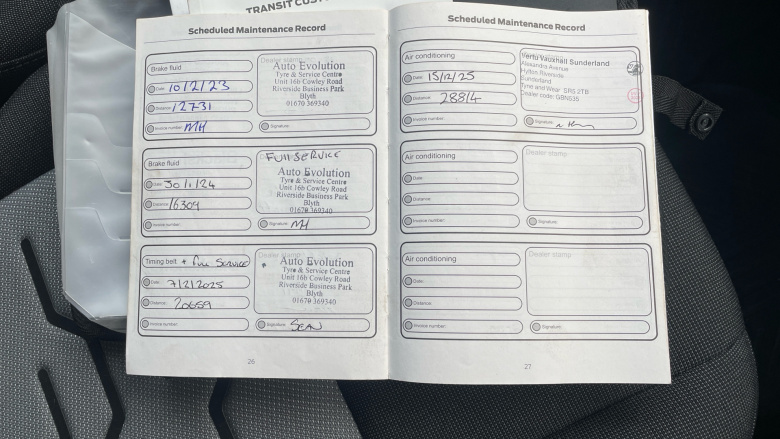 TRANSIT CUST
Scheduled Maintenance Record
Brake fluid
Date: 10/2/23
Distance: 12731
Invoice number: MH
Dealer stamp
Auto Evolution
Tyre & Service Centre
Unit 16b Cowley Road
Riverside Business Park
Blyth
01670 369340
Signature:
Brake fluid
Date: 30/1/24
Distance: 16309
Invoice number:
FULL SERVICE
Auto Evolution
Tyre & Service Centre
Unit 16b Cowley Road
Riverside Business Park
Blyth
01670 369340
Signature: MH
Timing belt + Full Service
Date: 7/2/2025
Distance: 20659
Invoice number:
Dealer stamp
Auto Evolution
Tyre & Service Centre
Unit 16b Cowley Road
Riverside Business Park
Blyth
01670 369340
Signature: SEAN
26
Scheduled Maintenance Record
Air conditioning
Date: 15/12/25
Distance: 28814
Invoice number:
Vertu Vauxhall Sunderland
Alexandra Avenue
Hylton Riverside
Sunderland
Tyne and Wear SR5 2TB
Dealer code: GBN535
Signature:
Air conditioning
Date:
Distance:
Invoice number:
Dealer stamp
Signature:
Air conditioning
Date:
Distance:
Invoice number:
Dealer stamp
Signature:
27